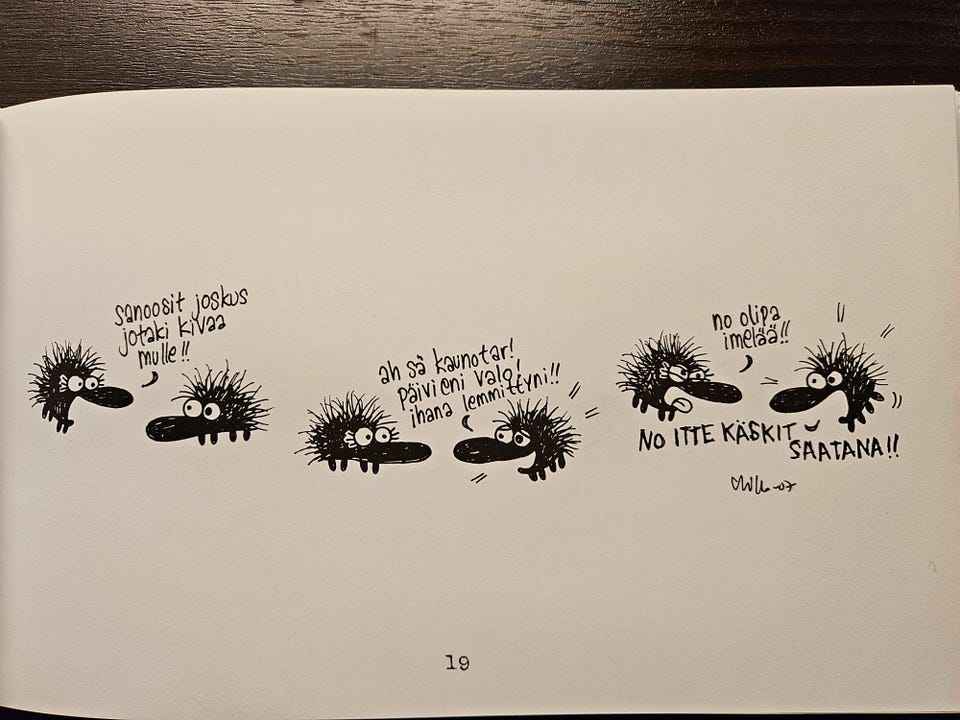 sanoosit joskus
jotaki kivaa
mulle!!
ah sä kaunotar!
päivieni valo!
ihana lemmittyni!!
no olipa
imelää!!
NO ITTE KÄSKIT
SAATANA!!
19